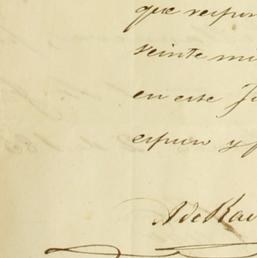 que respon
veinte mi
en este Ju
espuro y f
A de Rau